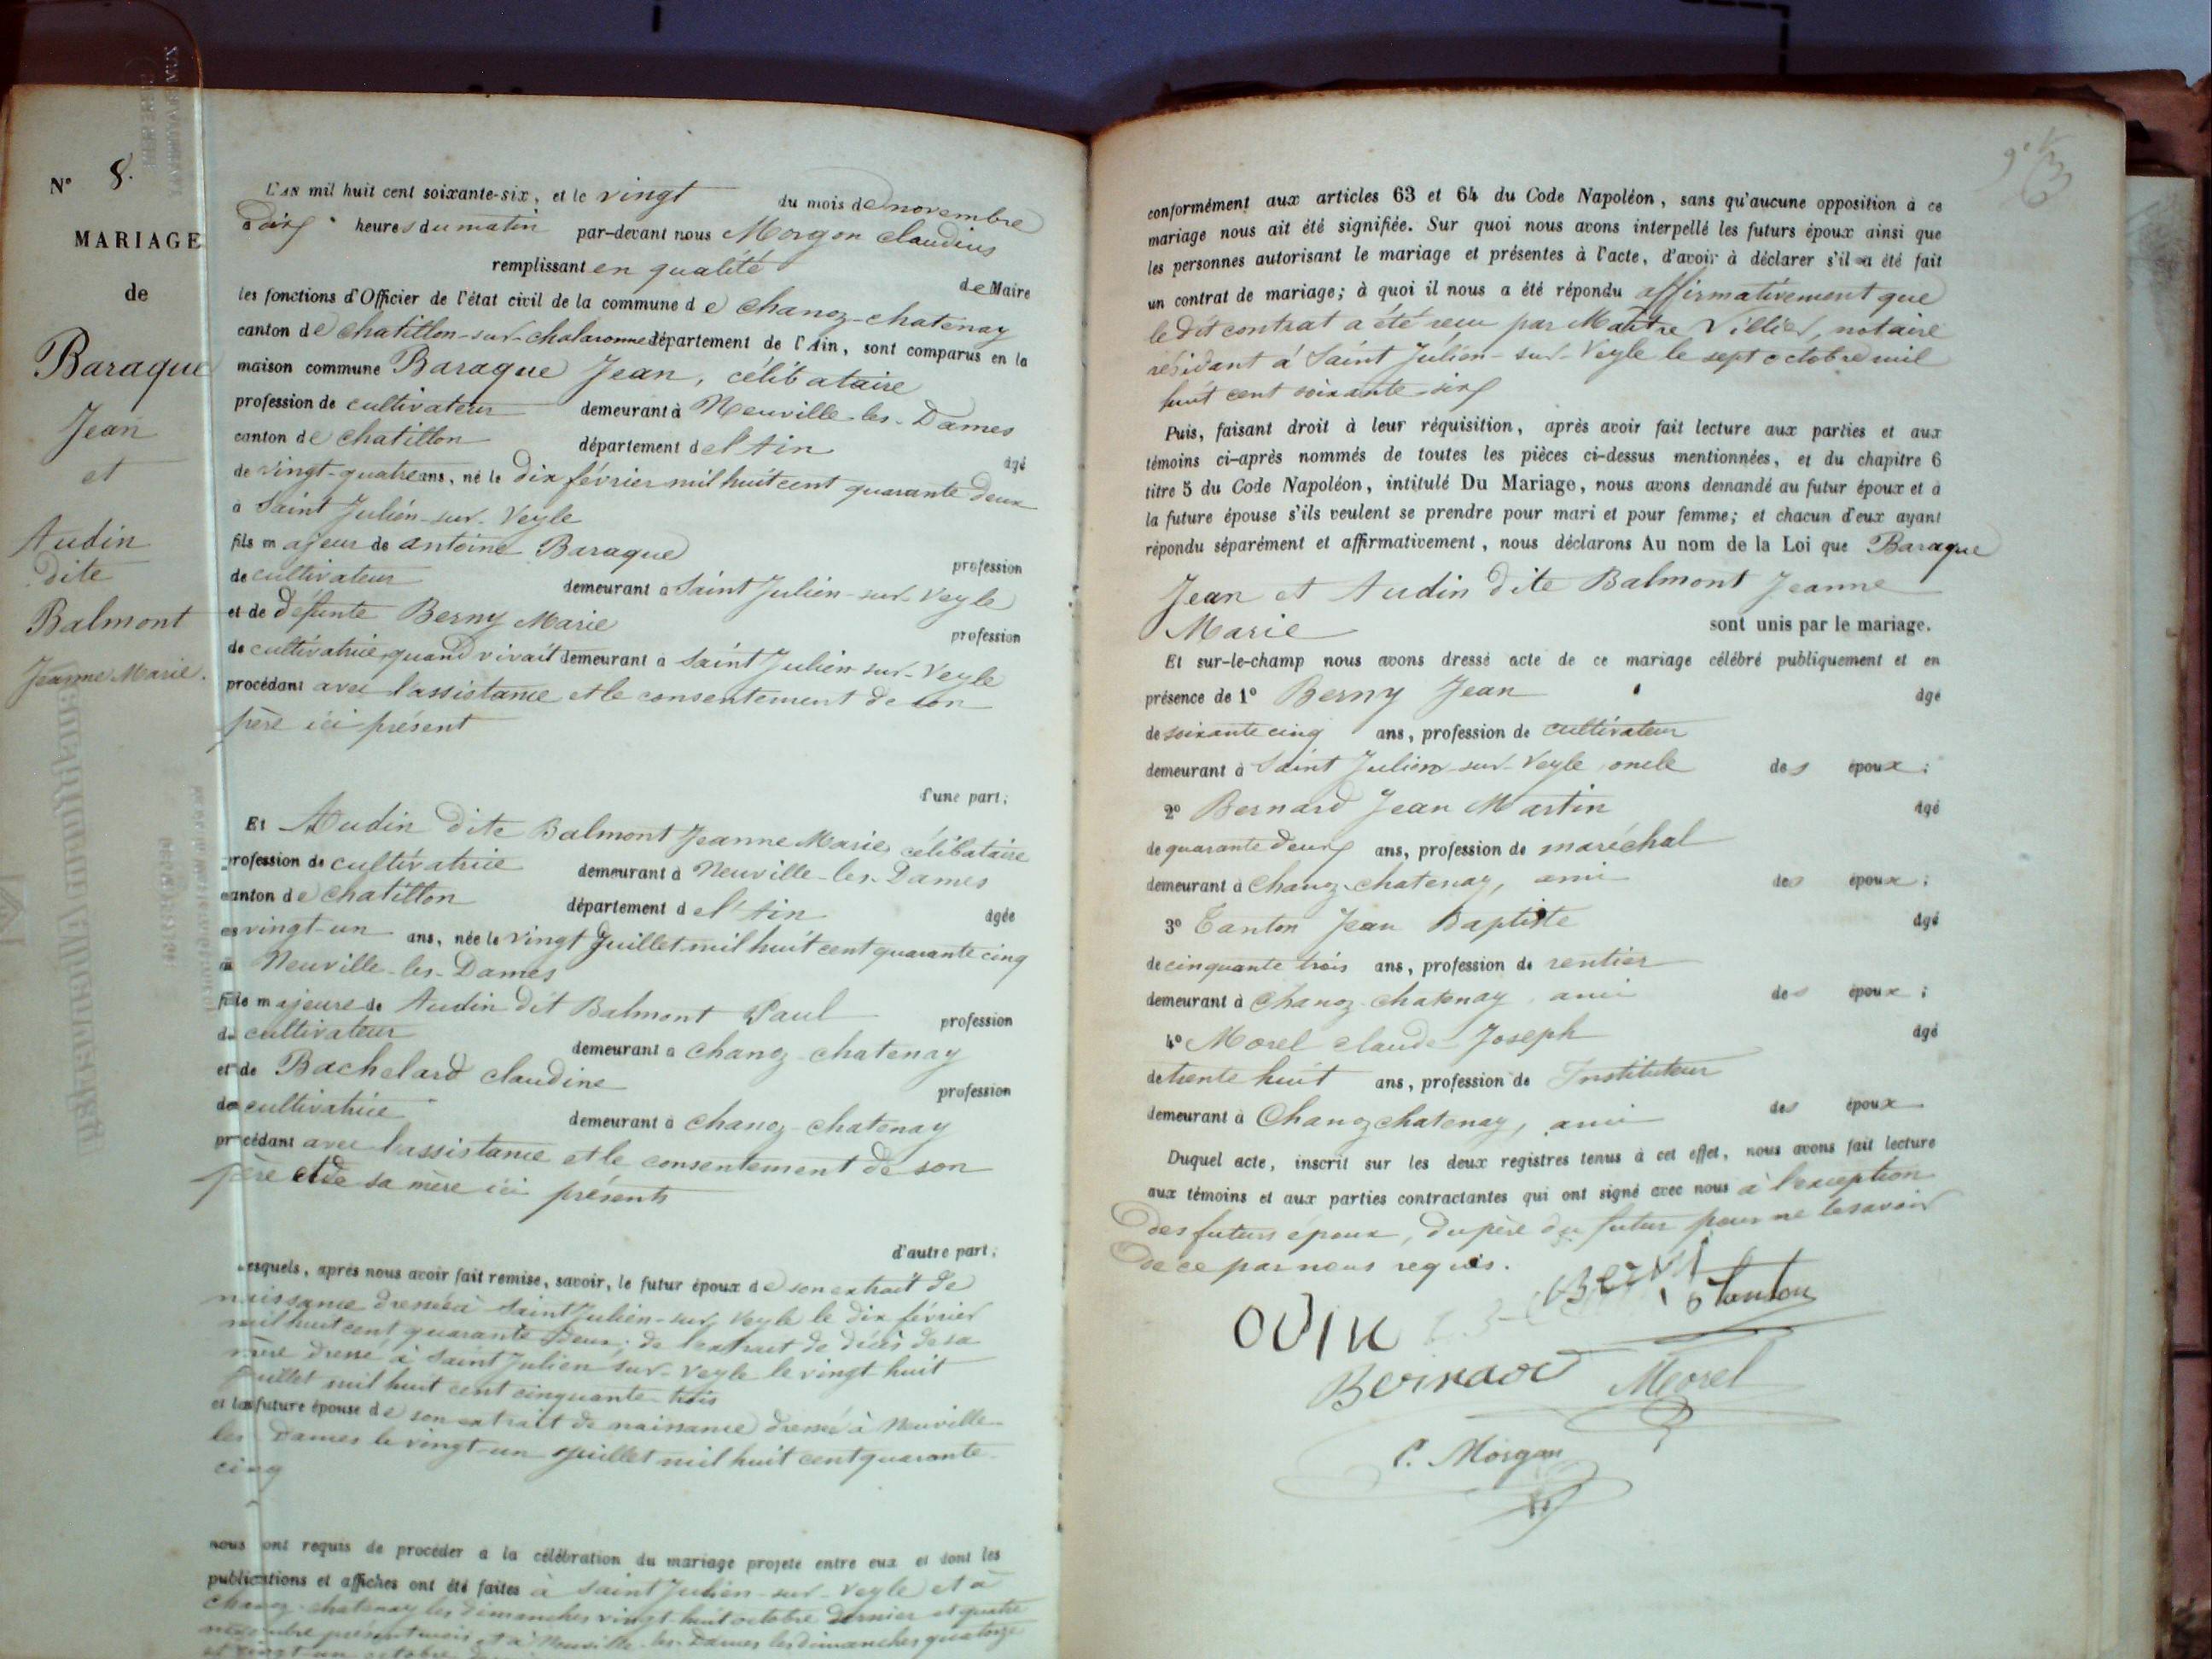 N° 8.
MARIAGE
de
Baraque
Jean
et
Audin
dite
Balmont
Jeanne Marie.
L'AN mil huit cent soixante-six, et le vingt du mois de novembre
à dix heures du matin par-devant nous Morgon Claudius
remplissant en qualité de Maire
les fonctions d'Officier de l'état civil de la commune de Chanoz-chatenay
canton de Chatillon-sur-chalaronne département de l'Ain, sont comparus en la
maison commune Baraque Jean, célibataire
profession de cultivateur demeurant à Neuville-les-Dames
canton de chatillon département de l'Ain âgé
de vingt-quatre ans, né le dix février mil huit cent quarante deux
à Saint Julien-sur-Veyle
fils majeur de antoine Baraque profession
de cultivateur demeurant à Saint Julien-sur-Veyle
et de défunte Berny Marie profession
de cultivatrice, quand vivait demeurant à Saint Julien-sur-Veyle
procédant avec l'assistance et le consentement de son
père ici présent
d'une part;
Et Audin dite Balmont Jeanne Marie, célibataire
profession de cultivatrice demeurant à Neuville-les-Dames
canton de chatillon département de l'Ain âgée
de vingt-un ans, née le vingt Juillet mil huit cent quarante cinq
à Neuville-les-Dames
fille majeure de Audin dit Balmont Paul profession
de cultivateur demeurant à chanoz-chatenay
et de Bachelard claudine profession
de cultivatrice demeurant à chanoz-chatenay
procédant avec l'assistance et le consentement de son
père et de sa mère ici présents
d'autre part;
Lesquels, après nous avoir fait remise, savoir, le futur époux de son extrait de
naissance dressé à Saint Julien-sur-Veyle le dix février
mil huit cent quarante deux; de l'extrait de décès de sa
mère dressé à Saint Julien sur-Veyle le vingt huit
juillet mil huit cent cinquante-trois
et la future épouse de son extrait de naissance dressé à Neuville-
les-Dames le vingt-un Juillet mil huit cent quarante-
cinq
nous ont requis de procéder à la célébration du mariage projeté entre eux et dont les
publications et affiches ont été faites à Saint Julien-sur-Veyle et à
Chanoz-chatenay les dimanches vingt-huit octobre dernier et quatre
novembre présent mois et à Neuville-les-Dames les dimanches quatorze
et vingt-un octobre
conformément aux articles 63 et 64 du Code Napoléon, sans qu'aucune opposition à ce
mariage nous ait été signifiée. Sur quoi nous avons interpellé les futurs époux ainsi que
les personnes autorisant le mariage et présentes à l'acte, d'avoir à déclarer s'il a été fait
un contrat de mariage; à quoi il nous a été répondu affirmativement que
le dit contrat a été reçu par Maître Villier, notaire
résidant à Saint Julien-sur-Veyle le sept octobre mil
huit cent soixante-six
Puis, faisant droit à leur réquisition, après avoir fait lecture aux parties et aux
témoins ci-après nommés de toutes les pièces ci-dessus mentionnées, et du chapitre 6
titre 5 du Code Napoléon, intitulé Du Mariage, nous avons demandé au futur époux et à
la future épouse s'ils veulent se prendre pour mari et pour femme; et chacun d'eux ayant
répondu séparément et affirmativement, nous déclarons Au nom de la Loi que Baraque
Jean et Audin dite Balmont Jeanne
Marie sont unis par le mariage.
Et sur-le-champ nous avons dressé acte de ce mariage célébré publiquement et en
présence de 1° Berny Jean âgé
de soixante cinq ans, profession de cultivateur
demeurant à Saint Julien-sur-Veyle, oncle des époux;
2° Bernard Jean Martin âgé
de quarante deux ans, profession de maréchal
demeurant à Chanoz-chatenay, ami des époux;
3° Tanton Jean Baptiste âgé
de cinquante trois ans, profession de rentier
demeurant à Chanoz-chatenay, ami des époux;
4° Morel claude Joseph âgé
de trente huit ans, profession de Instituteur
demeurant à Chanoz chatenay, ami des époux
Duquel acte, inscrit sur les deux registres tenus à cet effet, nous avons fait lecture
aux témoins et aux parties contractantes qui ont signé avec nous à l'exception
des futurs époux, du père du futur pour ne le savoir
de ce par nous requis.
Tanton
Bernard Morel
C. Morgon